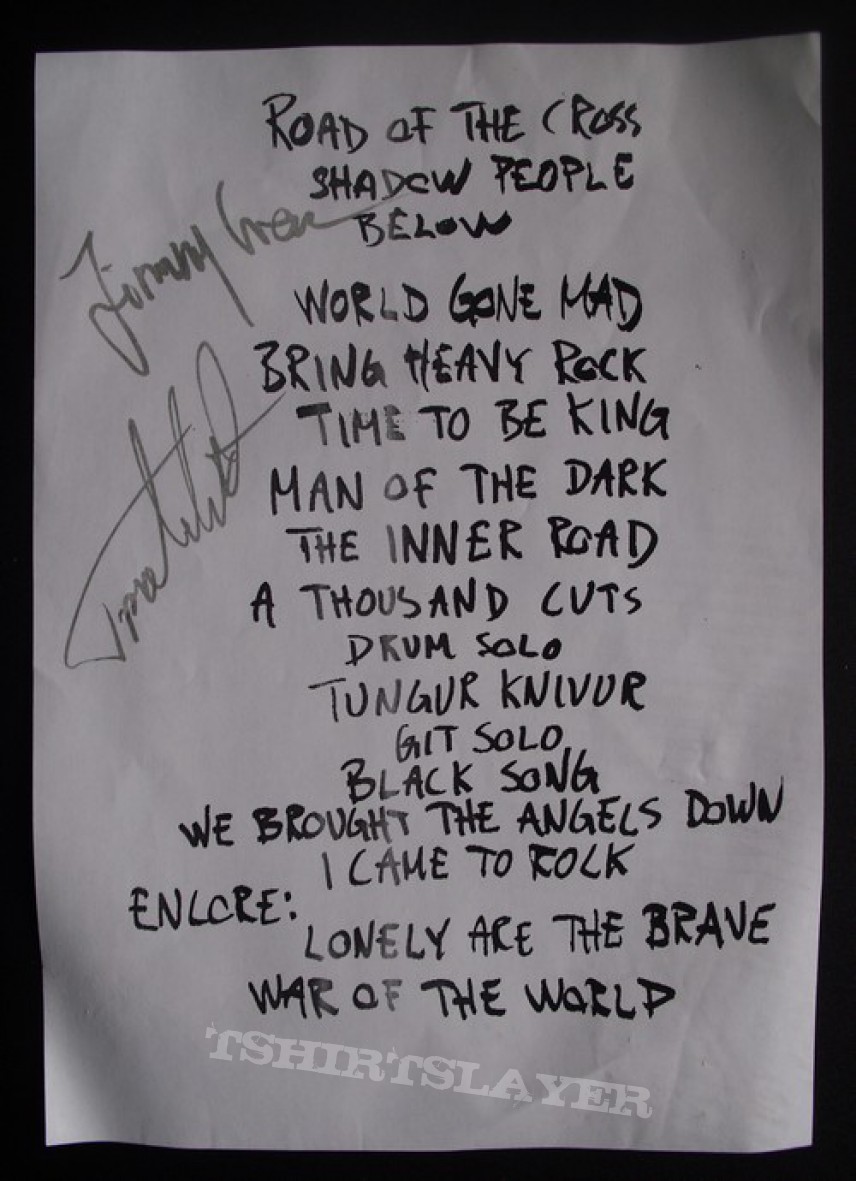 ROAD OF THE CROSS
SHADOW PEOPLE
BELOW
WORLD GONE MAD
BRING HEAVY ROCK
TIME TO BE KING
MAN OF THE DARK
THE INNER ROAD
A THOUSAND CUTS
DRUM SOLO
TUNGUR KNIVUR
GIT SOLO
BLACK SONG
WE BROUGHT THE ANGELS DOWN
I CAME TO ROCK
ENCORE:
LONELY ARE THE BRAVE
WAR OF THE WORLD
Jimmy
TSHIRTSLAYER